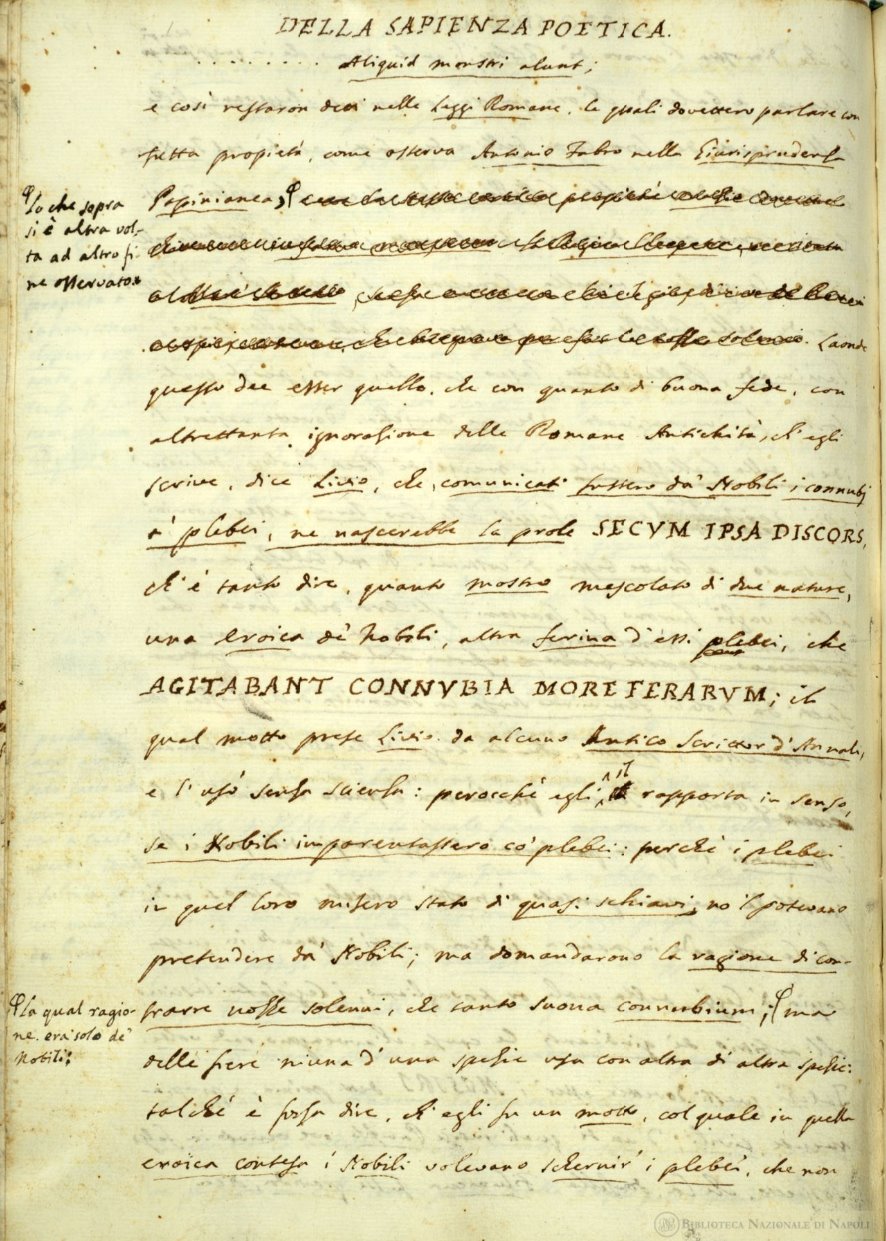 DELLA SAPIENZA POETICA.
. . . . . . . . . Aliquid monstri alunt;
e così restaron detti nelle Leggi Romane, le quali dovettero parlare con
tutta propietà, come osserva Antonio Fabro nella Giurisprudenza
Papinianea;
Laonde
questo dee esser quello, che con quanto di buona fede, con
altrettanta ignorazione delle Romane Antichità, ch' egli
scrive, dice Livio, che, comunicati fussero da' Nobili i connubj
a' plebei, ne nascerebbe la prole SECVM IPSA DISCORS,
ch' è tanto dire, quanto mostro mescolato di due nature,
una eroica de' Nobili, altra ferina d' essi plebei, che
AGITABANT CONNVBIA MORE FERARVM; il
qual motto prese Livio da alcuno Antico Scrittor d' Annali,
e l' usò senza scienza: perocchè egli il rapporta in senso,
se i Nobili imparentassero co' plebei: perchè i plebei
in quel loro misero stato di quasi schiavi, no 'l potevano
pretendere da' Nobili; ma domandarono la ragione di con-
trarre nozze solenni, che tanto suona connubium; ma
delle fiere niuna d' una spezie usa con altra di altra spezie:
talchè è forza dire, ch' egli fu un motto, col quale in quella
eroica contesa i Nobili volevano schernir' i plebei, che non
Lo che sopra
si è altra vol-
ta ad altro fi-
ne osservato.
La qual ragio-
ne era solo de'
Nobili:
BIBLIOTECA NAZIONALE DI NAPOLI